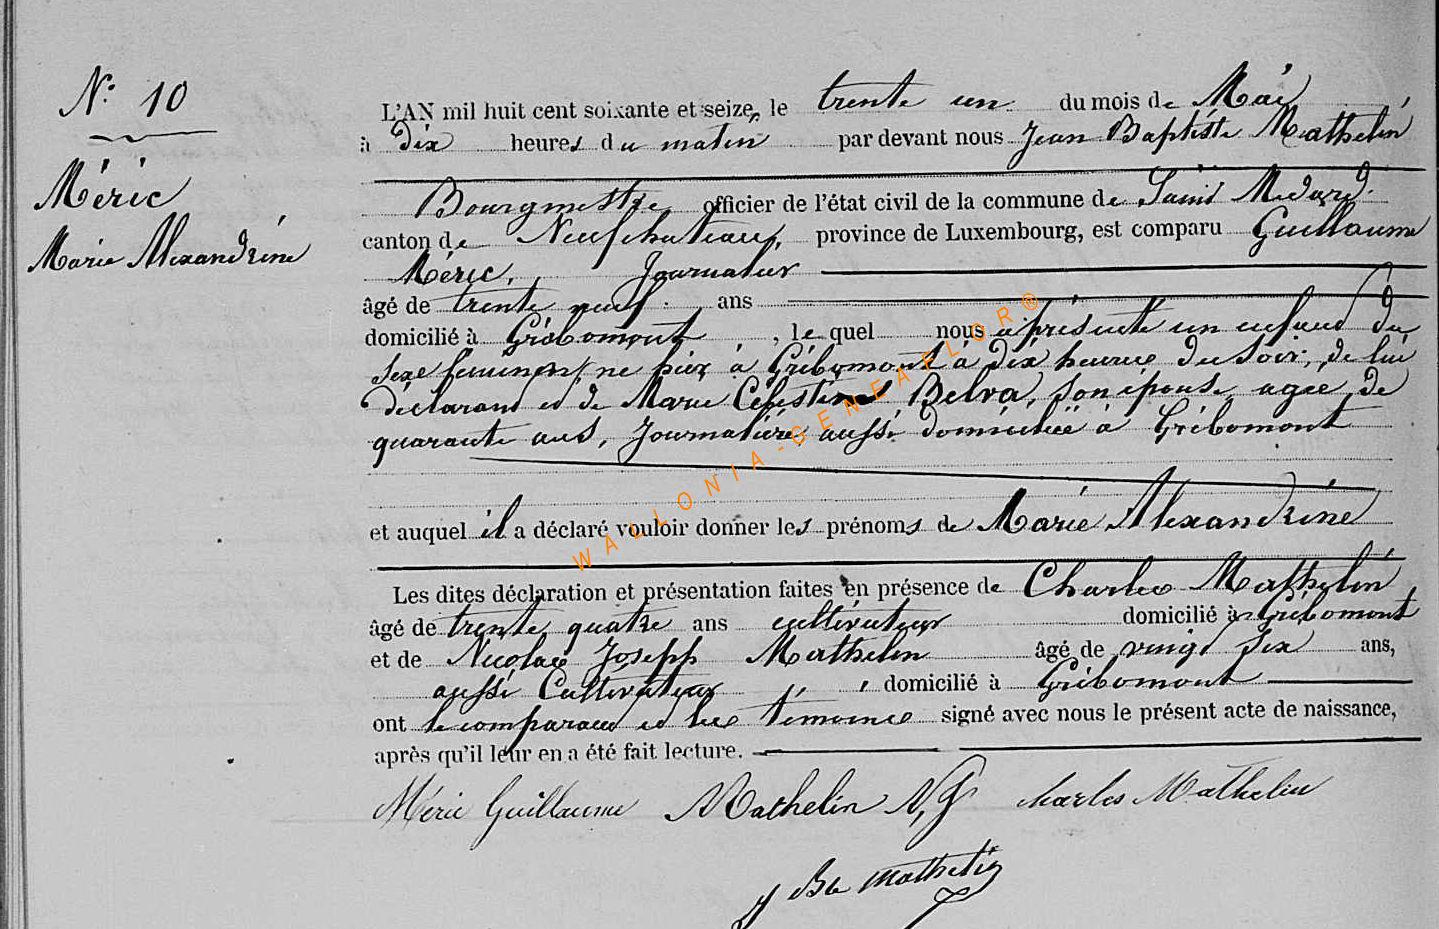 N° 10
Méric
Marie Alexandrine
L'AN mil huit cent soixante et seize, le trente un du mois de Mai
à dix heures du matin par devant nous Jean Baptiste Mathelin
Bourgmestre officier de l'état civil de la commune de Saint Medard
canton de Neufchateau, province de Luxembourg, est comparu Guillaume
Méric, Journalier
âgé de trente neuf ans
domicilié à Gribomont, lequel nous a présenté un enfant du
sexe féminin, né hier à Gribomont à dix heures du soir, de lui
déclarant et de Marie Célestine Belva, son épouse, agée de
quarante ans, Journalière aussi domiciliée à Gribomont
et auquel il a déclaré vouloir donner les prénoms de Marie Alexandrine
Les dites déclaration et présentation faites en présence de Charles Mathelin,
âgé de trente quatre ans cultivateur domicilié à Gribomont
et de Nicolas Joseph Mathelin âgé de vingt six ans,
aussi Cultivateur, domicilié à Gribomont
ont le comparant et les témoins signé avec nous le présent acte de naissance,
après qu'il leur en a été fait lecture.
Méric Guillaume Mathelin N, J charles Mathelin
J Bte Mathelin
WALLONIA-GENEAFLOR®